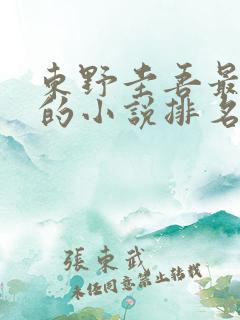 東野圭吾最
的小說排名
張東武
未經同意禁止轉載